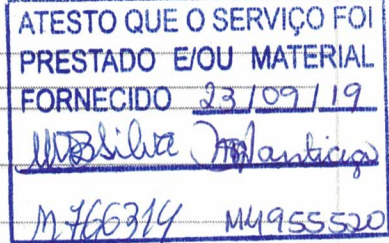 ATESTO QUE O SERVIÇO FOI
PRESTADO E/OU MATERIAL
FORNECIDO 23/09/19
M766314 M4955520